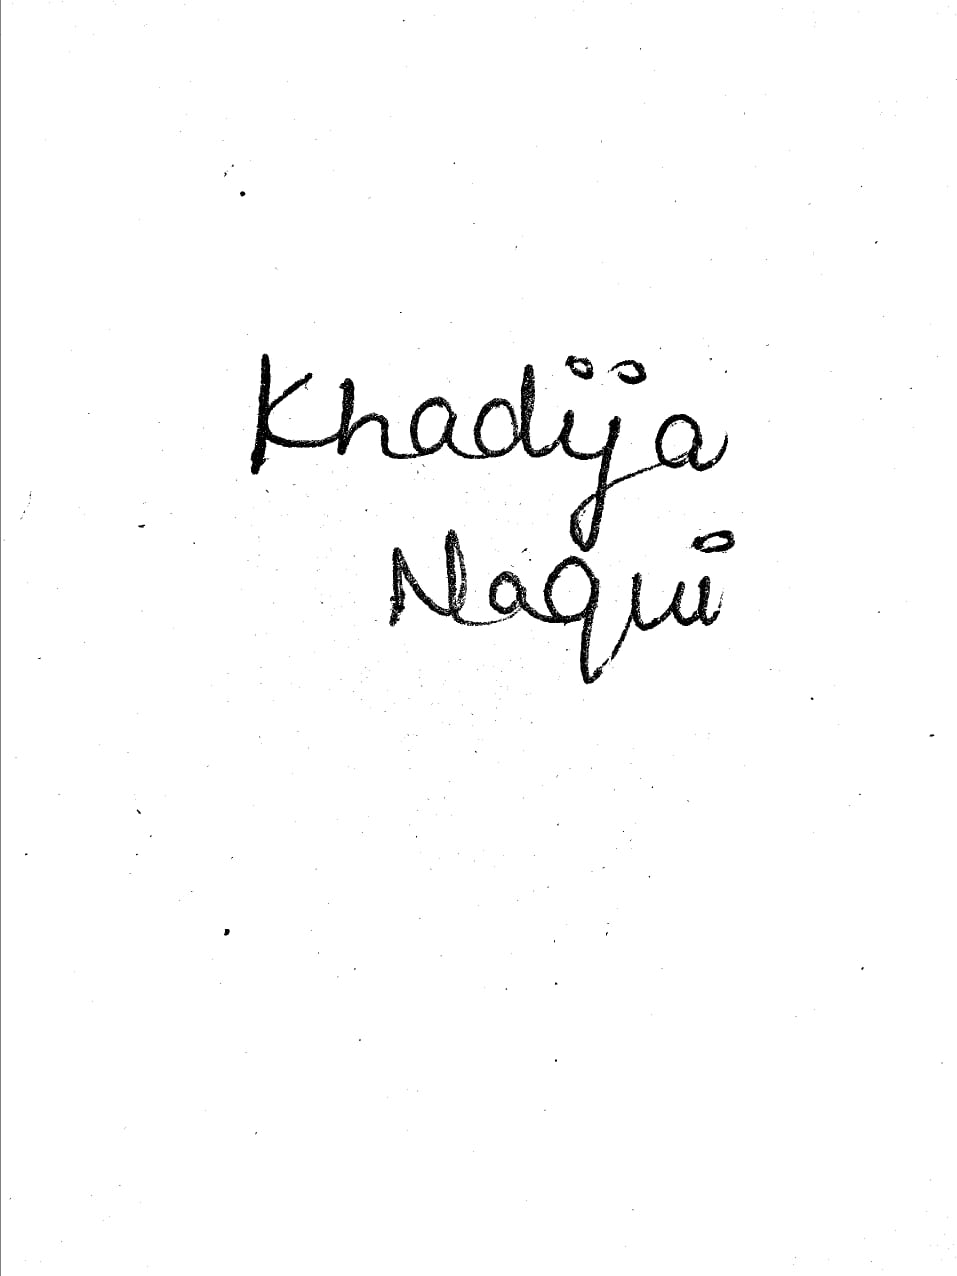 Khadija
Naqui